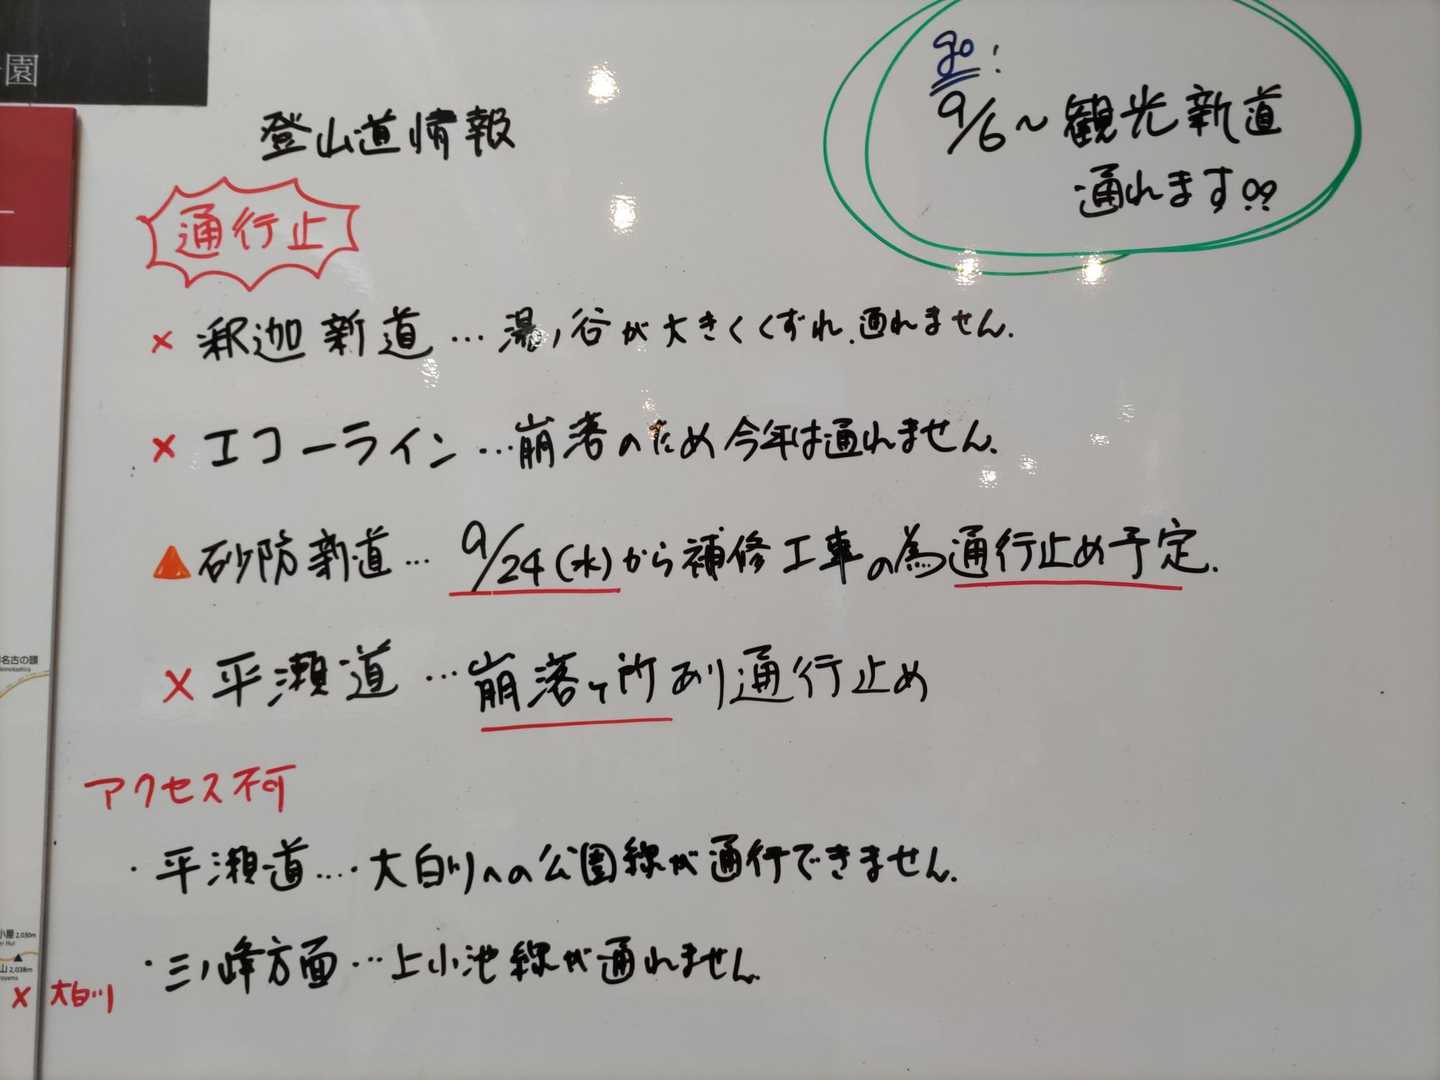 園
登山道情報
go:
9/6〜観光新道
通れます!!
通行止
× 釈迦新道…湯ノ谷が大きくくずれ、通れません。
× エコーライン…崩落のため今年は通れません。
▲ 砂防新道…9/24(水)から補修工事の為通行止め予定。
× 平瀬道…崩落ヶ所あり通行止め
アクセス不可
・平瀬道…大白川への公園線が通行できません。
・三ノ峰方面…上小池線が通れません
名古の頭
小屋 2,030m
山 2,038m
× 大白川